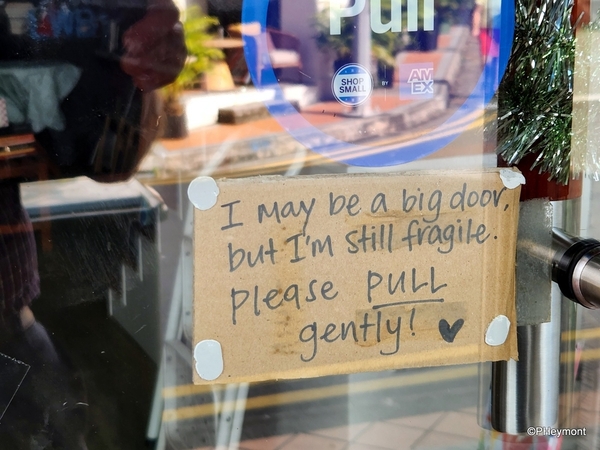 Pull
SHOP
SMALL
BY
AM
EX
I may be a big door,
but I'm still fragile.
please PULL
gently! ♥
©PHeymont